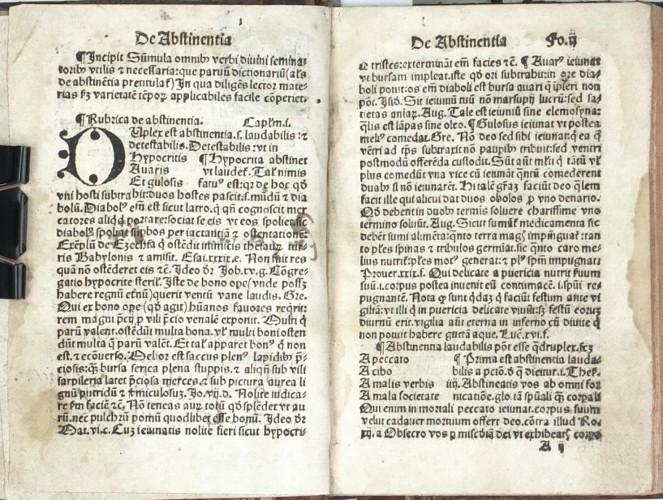 De Abstinentia
¶Incipit Sūmula omnibꝰ verbi diuini seminatoribꝰ
vtilis ⁊ necessaria: que paruū dictionariū
de abstinētia In qua diligēs lector materias
varietate applicabiles facile cōperiet.
¶Rubrica de abstinentia. Caplm.i.
DUplex est abstinentia.s. laudabilis ⁊
detestabilis. Detestabilis: vt in
Hypocritis ¶Hypocrita abstinet
Auaris vt laudet̄. Tal' nimis
Et gulosis fatuꝰ est: qa de hoc qð
vni hosti subtrahit: duos hostes pascit.s. mūdū ⁊ dia
bolū. Diabolꝰ em̄ est sicut latro. q̄ cognoscit mer
catores aliqd portare: sociat se eis vt eos spoliet: sic
diabolꝰ spoliat per iactantiā ⁊ ostentationē
Exēplū de Ezechia q̄ ostēdit inimicis thesauꝝ nūc
Babylonis ⁊ amisit. Esai.xxxix.e. Non fuit res
quā nō ostēderet eis ⁊c. Ideo dr̄ Job.xv.g. Cōgre
gatio hypocrite steril'. Iste de bono ope (vnde posset
habere regnū) querit ventū vane laudis. Gre.
Qui ꝓ bono ope hūanos fauores reqrit:
rem magni precij ꝓ vili p̄cio venalē exponit. Multi q̄
parū valent. ostēdūt multa bona. vl' multi boni osten
dūt multa q̄ parū valēt. Et tal' apparet bonꝰ q̄ non
est. ⁊ ecōuerso. Melior est saccus plenꝰ lapidibꝰ p̄-
ciosis: q̄ bursa serica plena stuppis. ⁊ aliqn̄ sub vili
sarpileria latet p̄ciosa merces. ⁊ sub pictura aurea li
gnū putridū ⁊ v̄miculosuz. Jo.vij.d. Nolite iudica-
re ẜm faciē ⁊c. Nō teneas auꝝ totū qð splēdet vt au
rū. nec pulchrū pomū quodlibet esse bonū. Ideo dr̄
Mat.vi.c. Cuz ieiunatis nolite fieri sicut hypocri-
De Abstinentia Fo.ij
te tristes: extermināt em̄ facies ⁊c. ¶Auarꝰ ieiunat
vt bursam impleat. iste qð ori subtrahit: in ore dia-
boli ponit: os em̄ diaboli est bursa auari q̄ īpleri non
pōt. Sit ieiuniū tuū nō marsupij lucrū: sed sa-
tietas aniaꝝ. Aug. Tale est ieiuniū sine elemosyna:
q̄lis est lāpas sine oleo. ¶Gulosus ieiunat vt postea
melꝰ comedat. Gre. Nō deo sed sibi ieiunat: q̄ ea q̄
vētri ad tp̄s subtrahit nō paupibꝰ tribuit: sed ventri
postmodū offerēda custodit. Sūt aut̄ ml'ti q̄ tātū vl'
plus comedūt vna vice cū ieiunāt q̄ntū comederent
duabꝰ si nō ieiunarēt. Hi talē gr̄az faciūt deo q̄lem
facit ille qui alicui dat duos obolos ꝓ vno denario.
Qð debent in duobꝰ termis soluere charissime vno
termino soluūt. Aug. Sicut sumūt medicamenta sic
debēt sumi alimēta: q̄nto terra magꝭ impinguat̄: tan
to pl'es spinas ⁊ tribulos germīat. sic q̄nto caro me
lius nutrit̄: pl'es motꝰ generat̄: ⁊ plꝰ sp̄m impugnat̄
Prouer.xxix.f. Qui delicate a puericia nutrit ẜuum
suū.i. corpus postea inueniet eū contumacē.i. sp̄ui re
pugnantē. Nota q̄ sunt q̄daz q̄ faciūt festum ante vi
gilia: vt illi q̄ in puericia delicate viuūt: hꝫ festū eoꝝ
diurnū erit. vigilia aūt eterna in inferno cū diuite q̄
non potuit habere guttā aque. Luc.xvi.f.
¶Abstinentia laudabilis pōt esse qdruplex. scꝫ
A peccato ¶Prima est abstinentia lauda-
A cibo bilis a pctō. d̄ q̄ dicitur.i. Thes.
A malis verbis iiij. Abstineatis vos ab omni for
A mala societate nicatiōe. glo. tā sp̄uali q̄ corpali
Qui enim in mortali peccato ieiunat. corpus suum
velut cadauer mortuum offert deo. cōtra illud Ro.
xij.a Obsecro vos ꝑ mīam dei vt exhibeatꝭ corpo
A ij